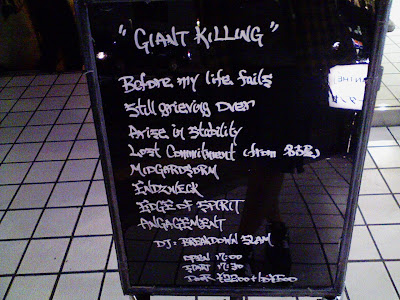 "GIANT KILLING"
Before my life fails
Still grieving over
Arise in stability
Lost Commitment (from 名古屋)
MIDGARDSORM
ENDZWECK
EDGE OF SPIRIT
ANGAGEMENT
DJ: BREAKDOWN SLAM
OPEN 17:00
START 17:30
DOOR